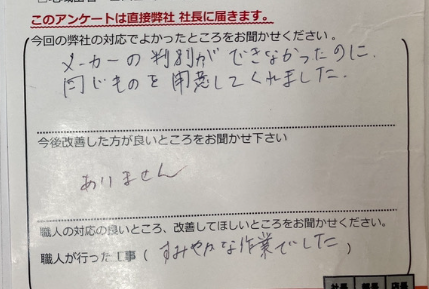 このアンケートは直接弊社 社長に届きます。
今回の弊社の対応でよかったところをお聞かせください。
メーカーの判別ができなかったのに、
同じものを用意してくれました。
今後改善した方が良いところをお聞かせ下さい
ありません
職人の対応の良いところ、改善してほしいところをお聞かせください。
職人が行った工事(すみやかな作業でした)
社長 部長 店長